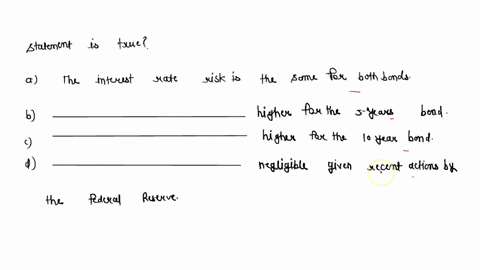 Statement is true?
a) The interest rate risk is the same for both bonds.
b) ____________ higher for the 5-years bond.
c) ____________ higher for the 10 year bond.
d) ____________ negligible given recent actions by
the Federal Reserve.